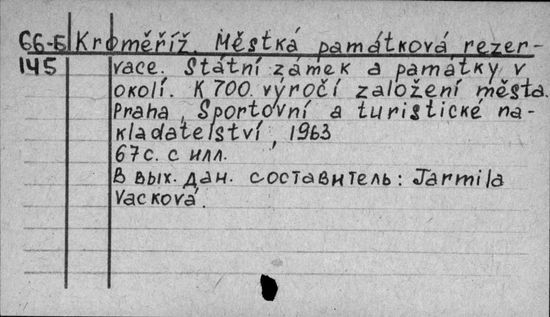 66-Б Kroměříž. Městká památková rezer-
145 vace. Státní zámek a památky v
okolí. K 700. výročí založení města.
Praha, Sportovní a turistické na-
kladatelství, 1963
67 с. с илл.
В вых. дан. составитель: Jarmila
Vacková.